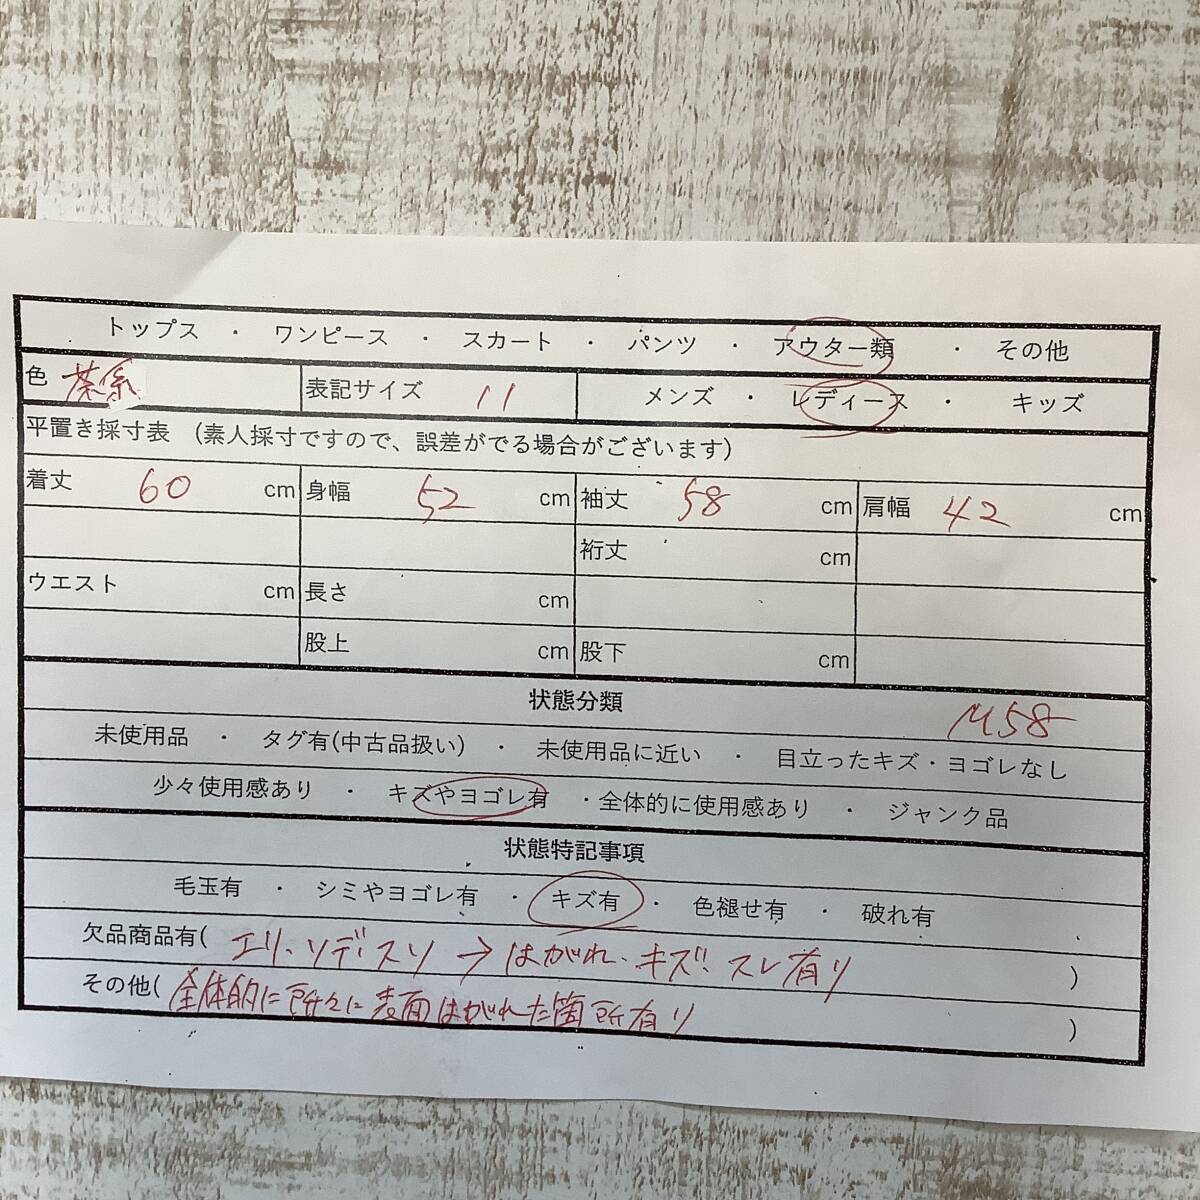 トップス ・ ワンピース ・ スカート ・ パンツ ・ アウター類 ・ その他
色 茶系 表記サイズ 11 メンズ ・ レディース ・ キッズ
平置き採寸表 (素人採寸ですので、誤差がでる場合がございます)
着丈 60 cm 身幅 52 cm 袖丈 58 cm 肩幅 42 cm
裄丈 cm
ウエスト cm 長さ cm
股上 cm 股下 cm
状態分類
M58
未使用品 ・ タグ有(中古品扱い) ・ 未使用品に近い ・ 目立ったキズ・ヨゴレなし
少々使用感あり ・ キズやヨゴレ有 ・全体的に使用感あり ・ ジャンク品
状態特記事項
毛玉有 ・ シミやヨゴレ有 ・ キズ有 ・ 色褪せ有 ・ 破れ有
欠品商品有( エリ、ソデ、スソ → はがれ、キズ、スレ有り )
その他( 全体的に所々に表面はがれた箇所有り )